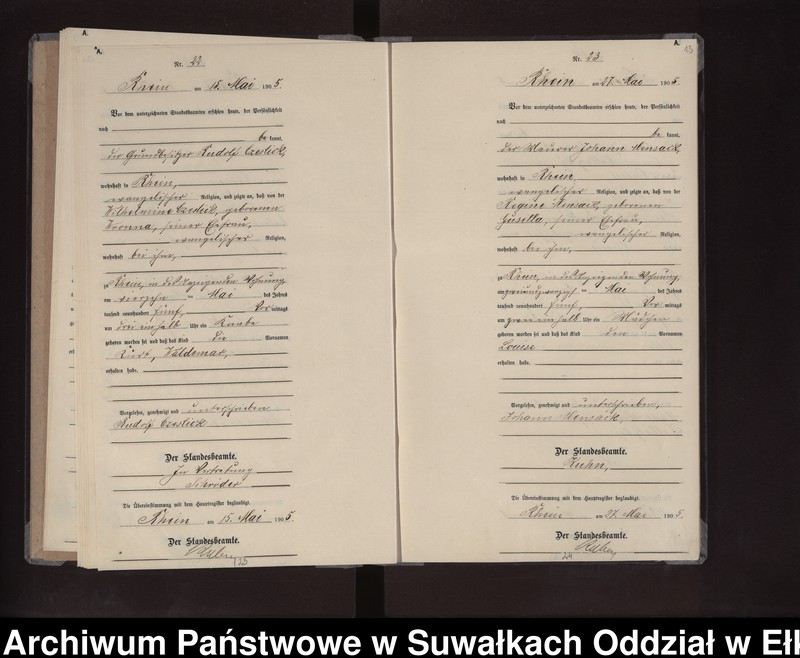 A.
Nr. 22
Rhein am 15. Mai 1905.
Vor dem unterzeichneten Standesbeamten erschien heute, der Persönlichkeit
nach
be kannt,
der Grundbesitzer Rudolf Czeslick,
wohnhaft in Rhein,
evangelischer Religion, und zeigte an, daß von der
Wilhelmine Czeslick, geborenen
seiner Ehefrau,
evangelischer Religion,
wohnhaft bei ihm,
zu Rhein, in der Wohnung,
am vierzehn ten Mai des Jahres
tausend neunhundert fünf, Vor mittags
um drei einhalb Uhr ein Knabe
geboren worden sei und daß das Kind die Vornamen
Kurt, Waldemar,
erhalten habe.
Vorgelesen, genehmigt und unterschrieben
Rudolf Czeslick
Der Standesbeamte.
In Vertretung
Schröder
Die Übereinstimmung mit dem Hauptregister beglaubigt.
Rhein am 15. Mai 1905.
Der Standesbeamte.
A.
Nr. 23
Rhein am 27. Mai 1905.
Vor dem unterzeichneten Standesbeamten erschien heute, der Persönlichkeit
nach
be kannt,
der Maurer Johann Mensack,
wohnhaft in Rhein,
evangelischer Religion, und zeigte an, daß von der
Regine Mensack, geborenen
Gusella, seiner Ehefrau,
evangelischer Religion,
wohnhaft bei ihm,
zu Rhein, in der Wohnung,
Mai des Jahres
tausend neunhundert fünf, Vor mittags
um zwei einhalb Uhr ein Mädchen
geboren worden sei und daß das Kind den Vornamen
Louise
erhalten habe.
Vorgelesen, genehmigt und unterschrieben,
Johann Mensack,
Der Standesbeamte.
Kuhn,
Die Übereinstimmung mit dem Hauptregister beglaubigt.
Rhein am 27. Mai 1905.
Der Standesbeamte.
Archiwum Państwowe w Suwałkach Oddział w Ełk